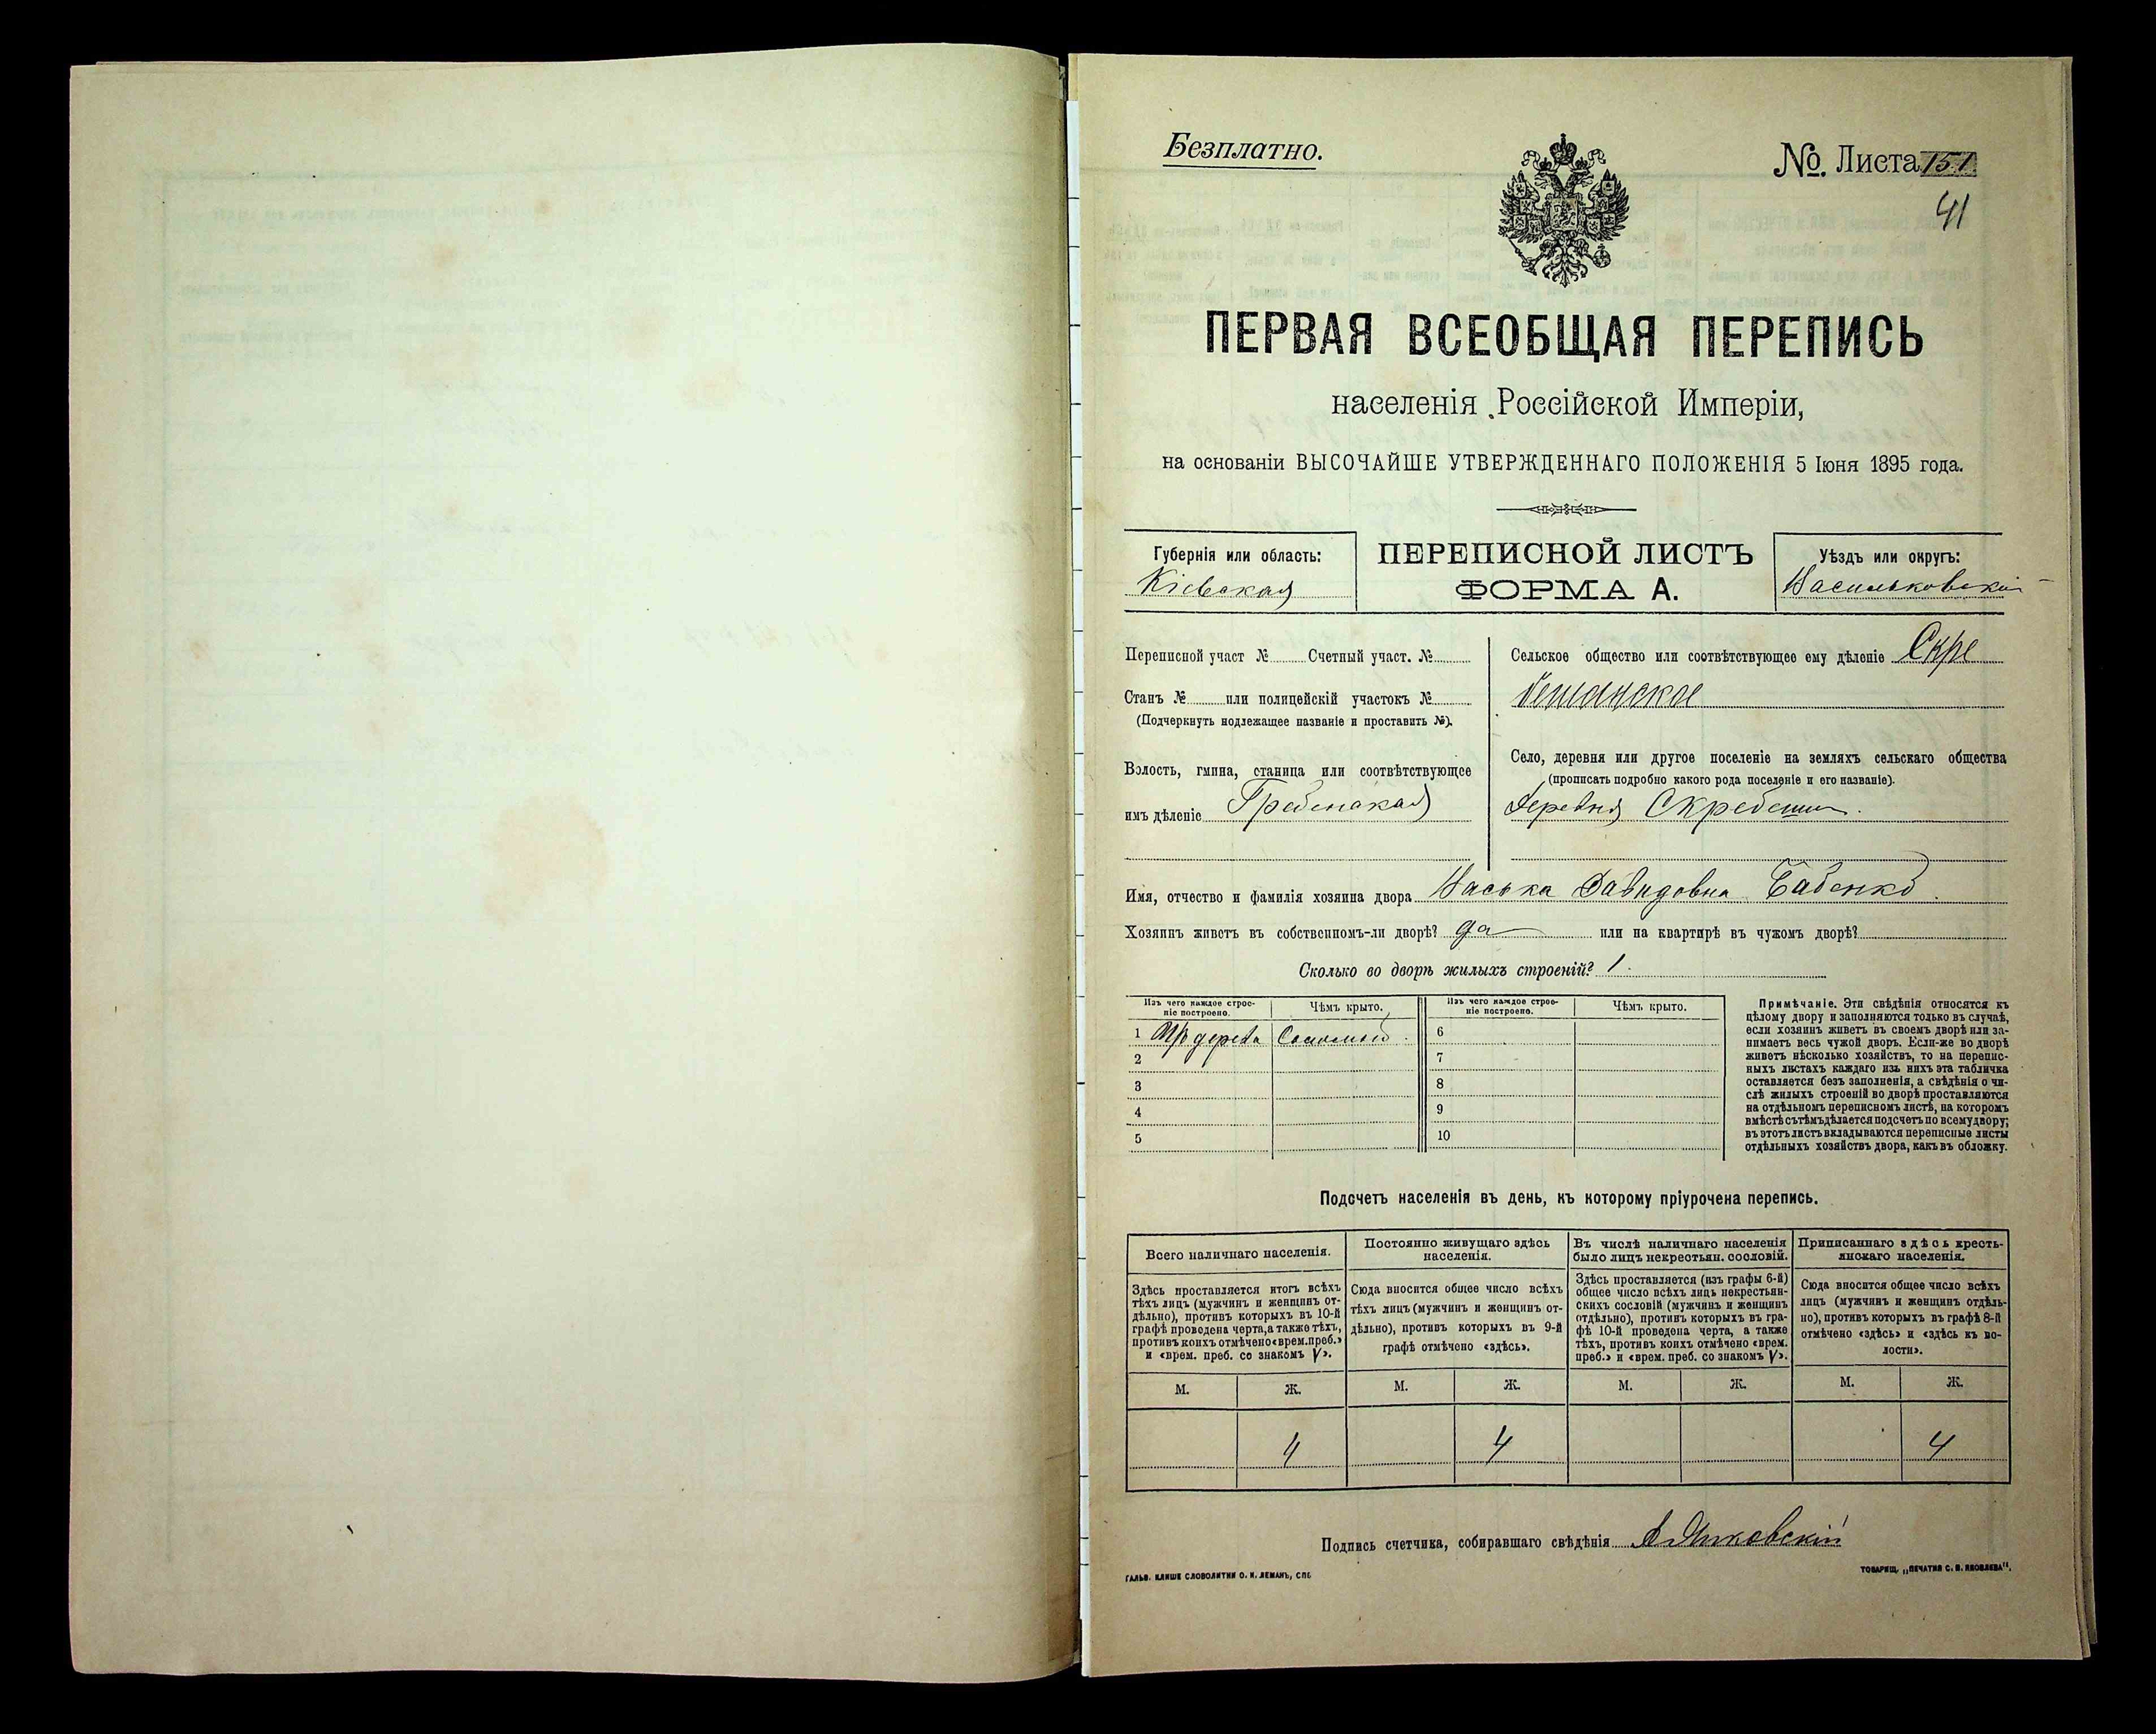 Безплатно.
№. Листа 151
41
ПЕРВАЯ ВСЕОБЩАЯ ПЕРЕПИСЬ
населенія Россійской Имперіи,
на основаніи ВЫСОЧАЙШЕ УТВЕРЖДЕННАГО ПОЛОЖЕНІЯ 5 Іюня 1895 года.
Губернія или область:
Кіевская
ПЕРЕПИСНОЙ ЛИСТЪ
ФОРМА А.
Уѣздъ или округъ:
Васильковскій
Переписной участ № Счетный участ. №
Станъ № или полицейскій участокъ №
(Подчеркнуть нодлежащее названіе и проставить №).
Волость, гмина, станица или соотвѣтствующее
имъ дѣленіе Гребенская
Сельское общество или соотвѣтствующее ему дѣленіе Скре
бешанское
Село, деревня или другое поселеніе на земляхъ сельскаго общества
(прописать подробно какого рода поселеніе и его названіе).
деревня Скребеши.
Имя, отчество и фамилія хозяина двора Васька Давидовна Бабенко.
Хозяинъ живетъ въ собственномъ-ли дворѣ? да или на квартирѣ въ чужомъ дворѣ?
Сколько во дворѣ жилыхъ строеній? 1.
Изъ чего каждое строеніе построено. Чѣмъ крыто.
Изъ чего каждое строеніе построено. Чѣмъ крыто.
1 Изъ дерева Соломой. 6
2 7
3 8
4 9
5 10
Примѣчаніе. Эти свѣдѣнія относятся къ
цѣлому двору и заполняются только въ случаѣ,
если хозяинъ живетъ въ своемъ дворѣ или за-
нимаетъ весь чужой дворъ. Если-же во дворѣ
живетъ нѣсколько хозяйствъ, то на перепис-
ныхъ листахъ каждаго изъ нихъ эта табличка
оставляется безъ заполненія, а свѣдѣнія о чи-
слѣ жилыхъ строеній во дворѣ проставляются
на отдѣльномъ переписномъ листѣ, на которомъ
вмѣстѣ съ тѣмъ дѣлается подсчетъ по всему двору;
въ этотъ листъ вкладываются переписные листы
отдѣльныхъ хозяйствъ двора, какъ въ обложку.
Подсчетъ населенія въ день, къ которому пріурочена перепись.
Всего наличнаго населенія.
Здѣсь проставляется итогъ всѣхъ
тѣхъ лицъ (мужчинъ и женщинъ от-
дѣльно), противъ которыхъ въ 10-й
графѣ проведена черта, а также тѣхъ,
противъ коихъ отмѣчено «врем. преб.»
и «врем. преб. со знакомъ V».
Постоянно живущаго здѣсь
населенія.
Сюда вносится общее число всѣхъ
тѣхъ лицъ (мужчинъ и женщинъ от-
дѣльно), противъ которыхъ въ 9-й
графѣ отмѣчено «здѣсь».
Въ числѣ наличнаго населенія
было лицъ некрестьян. сословій.
Здѣсь проставляется (изъ графы 6-й)
общее число всѣхъ лицъ некрестьян-
скихъ сословій (мужчинъ и женщинъ
отдѣльно), противъ которыхъ въ гра-
фѣ 10-й проведена черта, а также
тѣхъ, противъ коихъ отмѣчено «врем.
преб.» и «врем. преб. со знакомъ V».
Приписаннаго здѣсь кресть-
янскаго населенія.
Сюда вносится общее число всѣхъ
лицъ (мужчинъ и женщинъ отдѣль-
но), противъ которыхъ въ графѣ 8-й
отмѣчено «здѣсь» и «здѣсь къ во-
лости».
М. Ж. М. Ж. М. Ж. М. Ж.
4 4 4
Подпись счетчика, собиравшаго свѣдѣнія
ГАЛЬВ. КЛИШЕ СЛОВОЛИТНИ О. И. ЛЕМАНЪ, СПБ
ТОВАРИЩ. „ПЕЧАТНЯ С. П. ЯКОВЛЕВА".